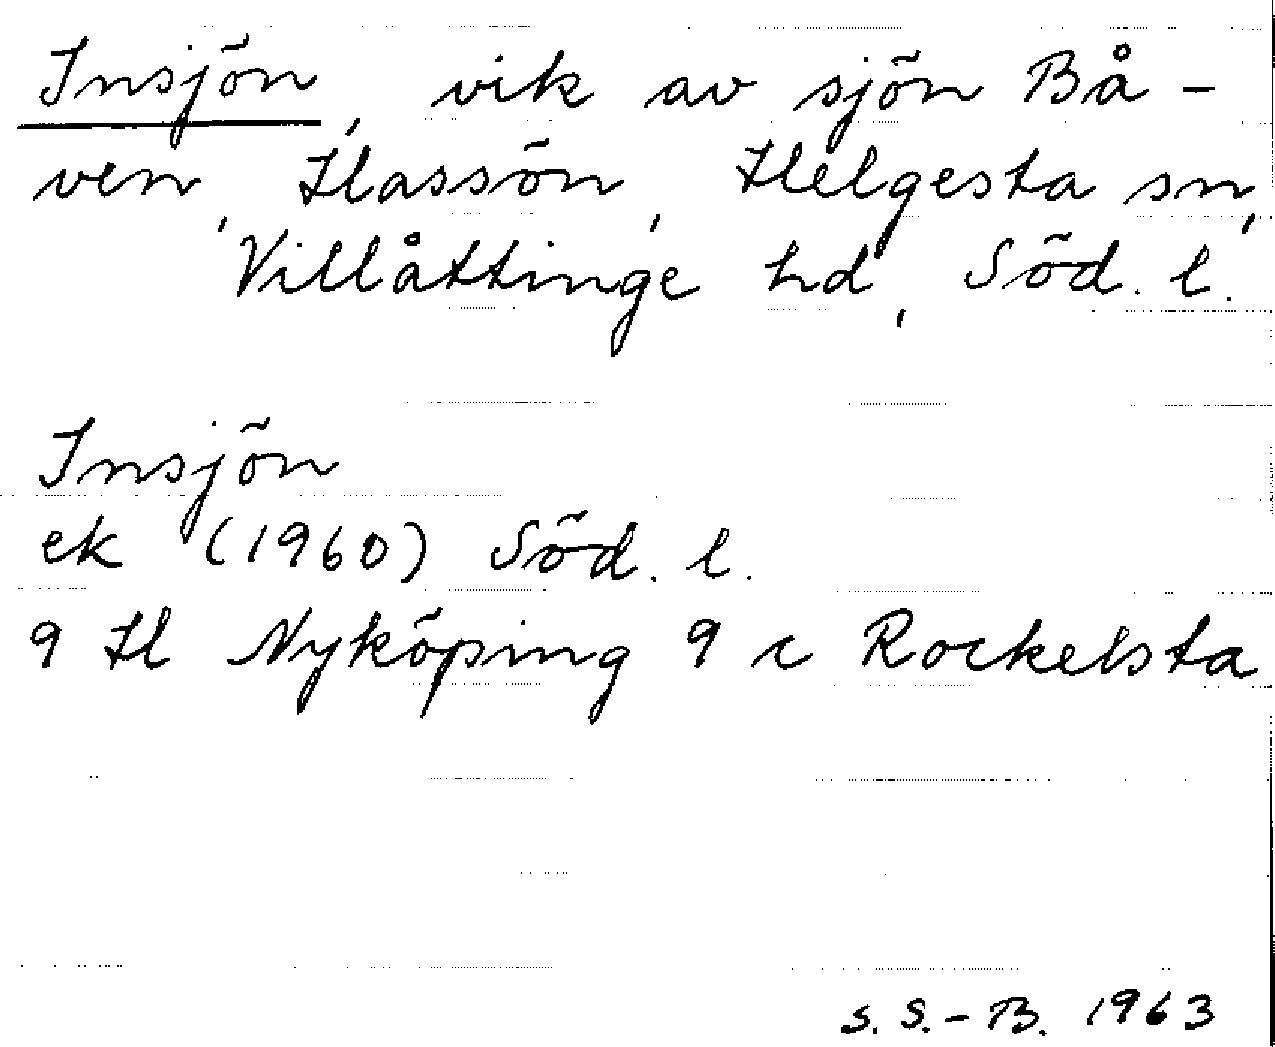 Insjön, vik av sjön Bå-
ven, Hassön, Helgesta sn,
Villåttinge hd, Söd. l.
Insjön
ek (1960) Söd. l.
9 H Nyköping 9 c Rockelsta
S. S.-B. 1963